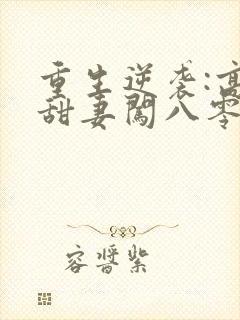 重生逆袭:高
甜妻闯八零
容酱紫